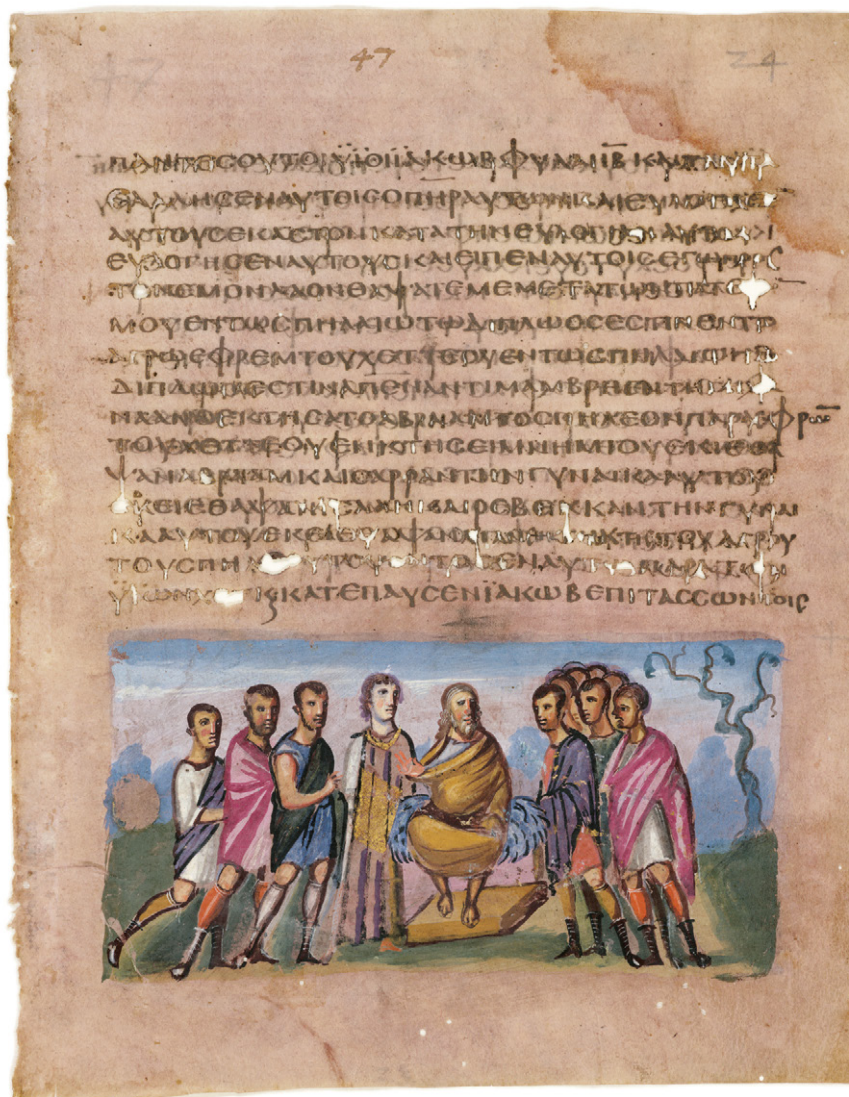 47 24
ΠΑΝΤΕCΟΥΤΟΙΫΙΟΙΪΑΚΩΒΦΥΛΑΙΙΒΚΑΙΤΑΥΤΑ
ΕΛΑΛΗCΕΝΑΥΤΟΙCΟΠΗΡΑΥΤΩΝΚΑΙΕΥΛΟΓΗCΕ
ΑΥΤΟΥCΕΚΑCΤΟΝΚΑΤΑΤΗΝΕΥΛΟΓΙΑΝΑΥΤΟΥΚΑΙ
ΕΥΛΟΓΗCΕΝΑΥΤΟΥCΚΑΙΕΙΠΕΝΑΥΤΟΙC
ΤΟΝΕΜΟΝΛΑΟΝΘΑΨΑΤΕΜΕΜΕΤΑΤΩΝ
ΜΟΥΕΝΤΩCΠΗΛΑΙΩΤΩΔΙΠΛΩΟCΕCΤΙΝΕΝΤΩ
ΑΓΡΩΕΦΡΕΜΤΟΥΧΕΤΤΕΟΥΕΝΤΩCΠΗΛΑΙΩΤΩ
ΔΙΠΛΩΕCΤΙΝΑΠΕΝΑΝΤΙΜΑΜΒΡΗΕΝΤΗΓΗ
ΧΑΝΑΑΝΟΕΚΤΗCΑΤΟΑΒΡΑΑΜΤΟCΠΗΛΕΟΝΠΑΡΑΕΦΡΩΝ
ΤΟΥΧΕΤΤΕΟΥΕΝΚΤΗCΕΙΜΝΗΜΙΟΥΕΚΕΙΕΘΑ
ΨΑΝΑΒΡΑΑΜΚΑΙCΑΡΡΑΝΤΗΝΓΥΝΑΙΚΑΑΥΤΟΥ
ΕΚΕΙΕΘΑΨΑΝΙCΑΑΚΚΑΙΡΕΒΕΚΚΑΝΤΗΝΓΥΝΑΙ
ΚΑΑΥΤΟΥΕΚΕΙΕΘΑΨΑΝ ΑΓΡΟΥ
ΤΟΥCΠΗΛ ΕΝΑΥΤΩ
ΫΙΩΝ ΚΑΤΕΠΑΥCΕΝΪΑΚΩΒΕΠΙΤΑCCΩΝ